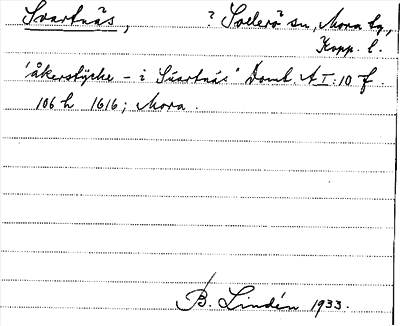 Svartnäs, ? Sollerö sn, Mora tg,
Kopp. l.
'åkerstycke - i Suartnäs' Domb. A I:10 f.
106 h 1616; Mora.
B. Lindén 1933.